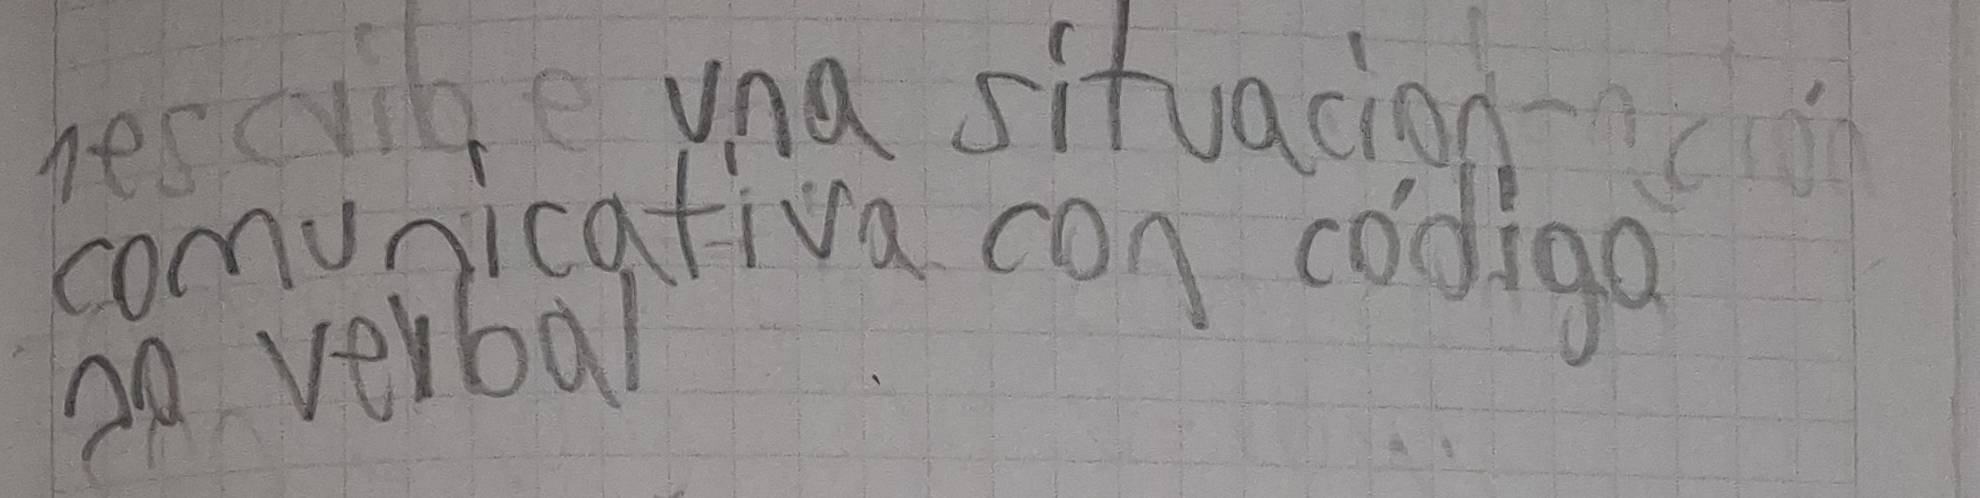 rescribe una situacion
comunicativa con código
no verbal